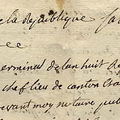 la République
ee
termineu de lan huit de
chef lieu de canton
devant moy notaire pub